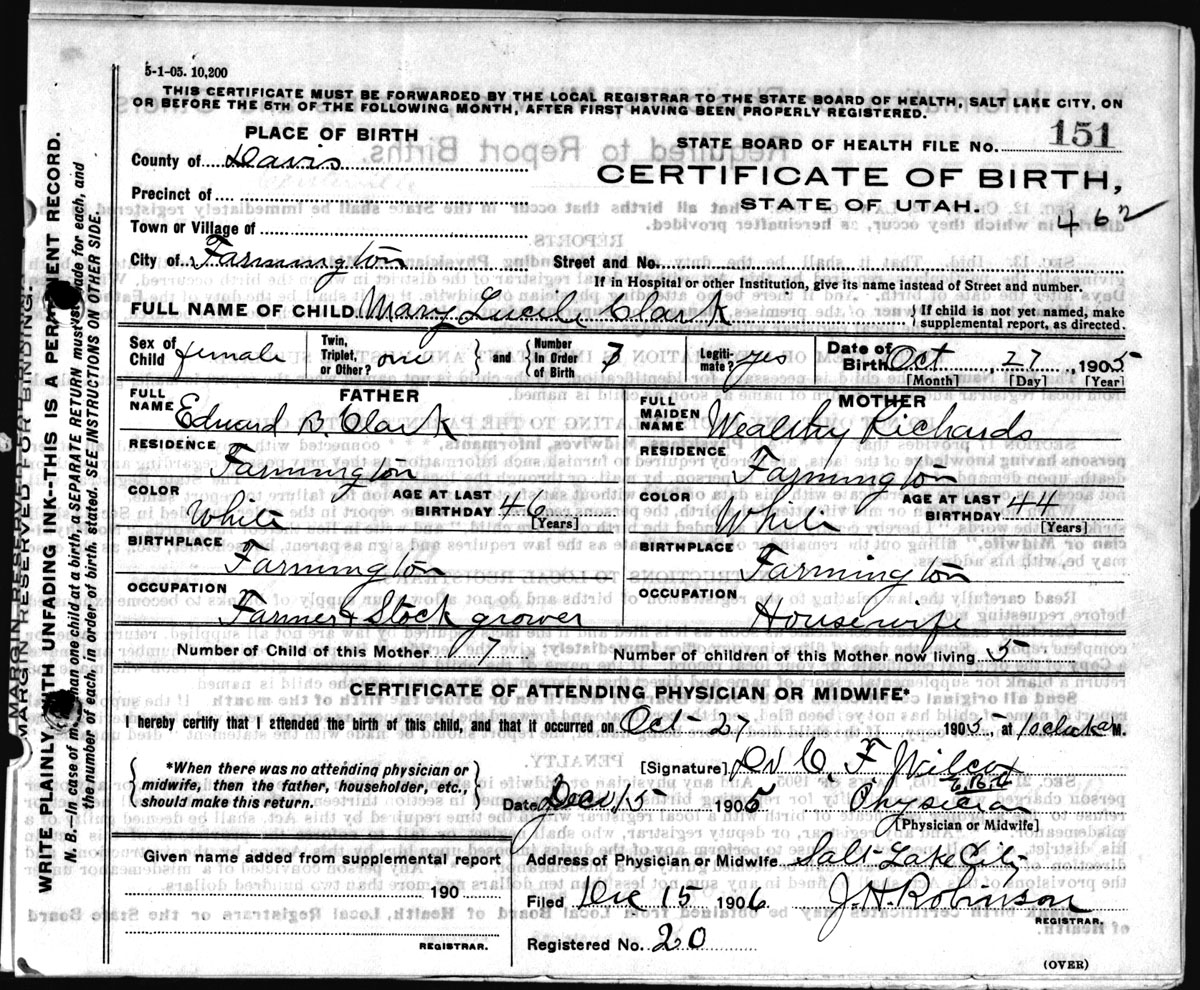 5-1-05. 10,200
THIS CERTIFICATE MUST BE FORWARDED BY THE LOCAL REGISTRAR TO THE STATE BOARD OF HEALTH, SALT LAKE CITY, ON
OR BEFORE THE 5TH OF THE FOLLOWING MONTH, AFTER FIRST HAVING BEEN PROPERLY REGISTERED.
PLACE OF BIRTH
STATE BOARD OF HEALTH FILE NO. 151
County of Davis
CERTIFICATE OF BIRTH,
Precinct of
STATE OF UTAH.
462
Town or Village of
City of Farmington
Street and No.
If in Hospital or other Institution, give its name instead of Street and number.
FULL NAME OF CHILD Mary Lucile Clark { If child is not yet named, make supplemental report, as directed.
Sex of Child female Twin, Triplet, or Other? one } and { Number in Order of Birth 7 Legitimate? yes Date of Birth Oct, 27, 1905
[Month] [Day] [Year]
FATHER
MOTHER
FULL NAME Edward B. Clark
FULL MAIDEN NAME Wealthy Richards
RESIDENCE Farmington
RESIDENCE Farmington
COLOR White AGE AT LAST BIRTHDAY 46 [Years]
COLOR White AGE AT LAST BIRTHDAY 44 [Years]
BIRTHPLACE Farmington
BIRTHPLACE Farmington
OCCUPATION Farmer & Stock grower
OCCUPATION Housewife
Number of Child of this Mother 7
Number of children of this Mother now living 5
CERTIFICATE OF ATTENDING PHYSICIAN OR MIDWIFE*
I hereby certify that I attended the birth of this child, and that it occurred on Oct-27 1905, at 1 oclock M.
{ *When there was no attending physician or midwife, then the father, householder, etc., should make this return. }
[Signature] Dr C. F. Wilcox
Date Dec 15 1905
Physician
[Physician or Midwife]
Given name added from supplemental report
190
REGISTRAR.
Address of Physician or Midwife Salt Lake City
Filed Dec 15 1906 J. H. Robinson
REGISTRAR.
Registered No. 20
(OVER)
MARGIN RESERVED FOR BINDING.
WRITE PLAINLY WITH UNFADING INK--THIS IS A PERMANENT RECORD.
N. B.--In case of more than one child at a birth, a SEPARATE RETURN must be made for each, and
the number of each, in order of birth, stated. SEE INSTRUCTIONS ON OTHER SIDE.